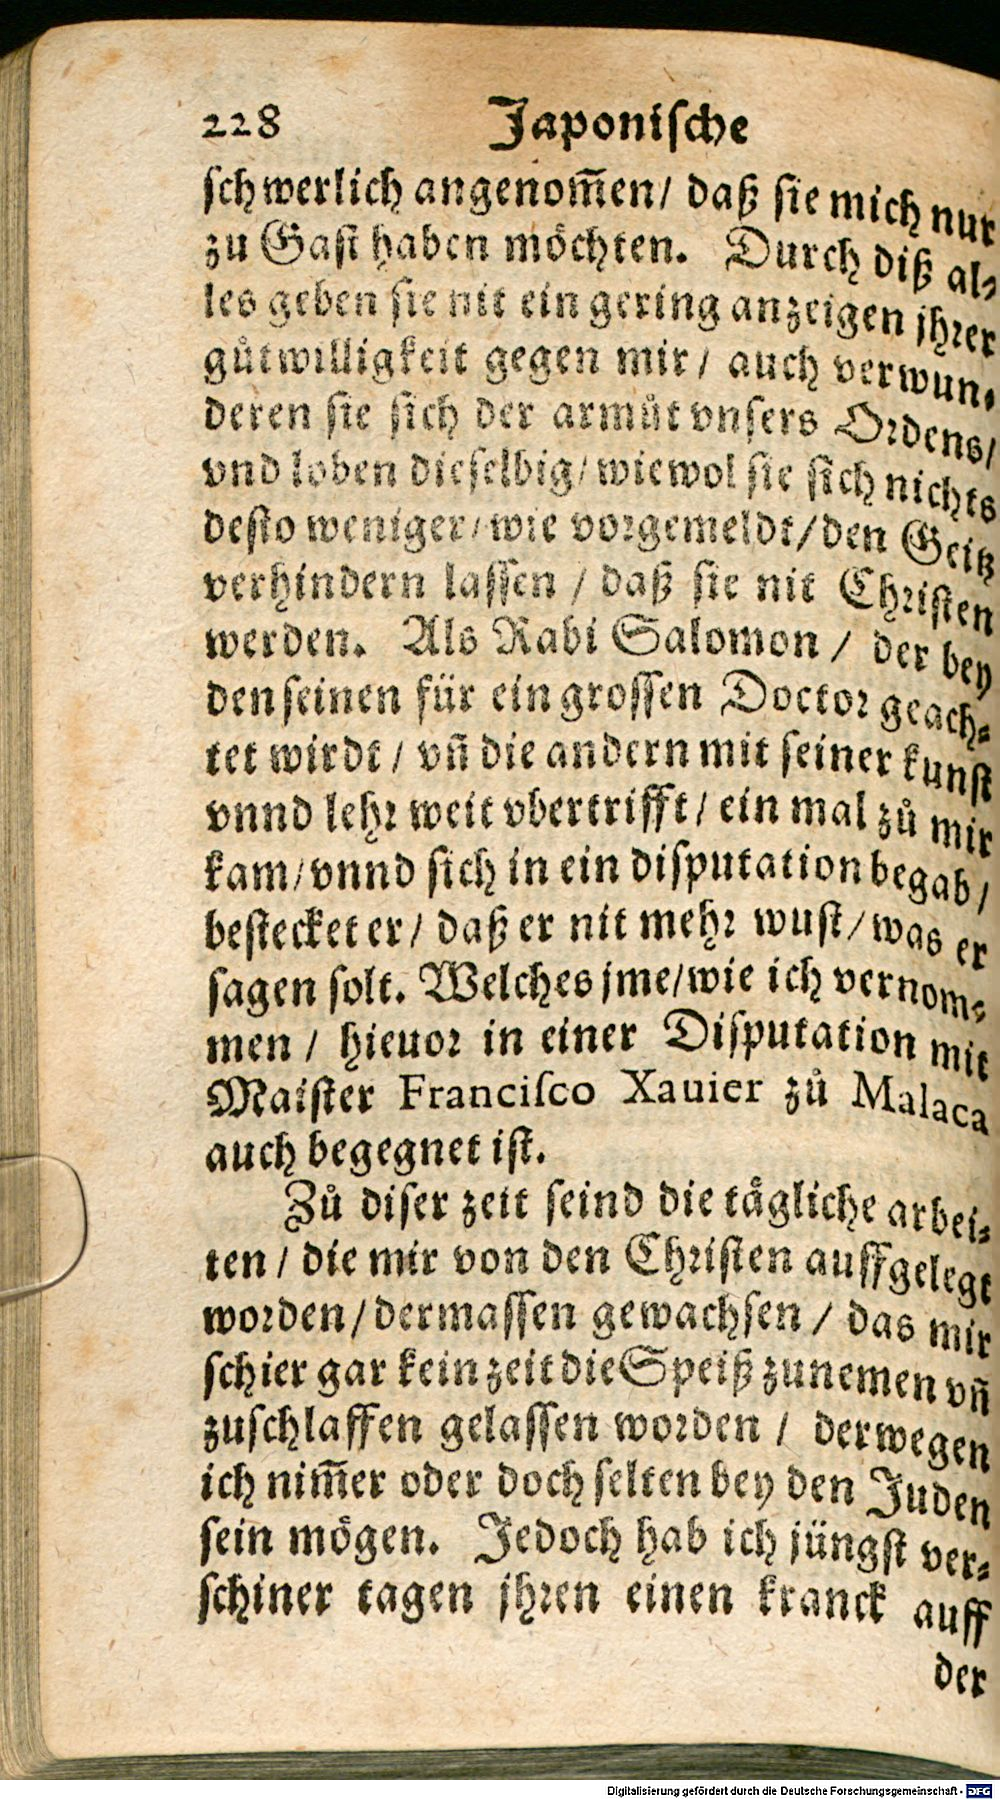 228 Japonische
schwerlich angenom̄en/ daß sie mich nur
zu Gast haben möchten. Durch diß al⸗
les geben sie nit ein gering anzeigen jhrer
gůtwilligkeit gegen mir/ auch verwun⸗
deren sie sich der armůt vnsers Ordens/
vnd loben dieselbig/ wiewol sie sich nichts
desto weniger/ wie vorgemeldt/ den Geitz
verhindern lassen / daß sie nit Christen
werden. Als Rabi Salomon / der bey
den seinen für ein grossen Doctor geach⸗
tet wirdt / vn̄ die andern mit seiner kunst
vnnd lehr weit vbertrifft / ein mal zů mir
kam/ vnnd sich in ein disputation begab/
bestecket er/ daß er nit mehr wust/ was er
sagen solt. Welches jme/ wie ich vernom⸗
men / hieuor in einer Disputation mit
Maister Francisco Xauier zů Malaca
auch begegnet ist.
Zů diser zeit seind die tägliche arbei⸗
ten / die mir von den Christen auffgelegt
worden/ dermassen gewachsen / das mir
schier gar kein zeit die Speiß zunemen vn̄
zuschlaffen gelassen worden / derwegen
ich nim̄er oder doch selten bey den Juden
sein mögen. Jedoch hab ich jüngst ver⸗
schiner tagen jhren einen kranck auff
der
Digitalisierung gefördert durch die Deutsche Forschungsgemeinschaft - DFG